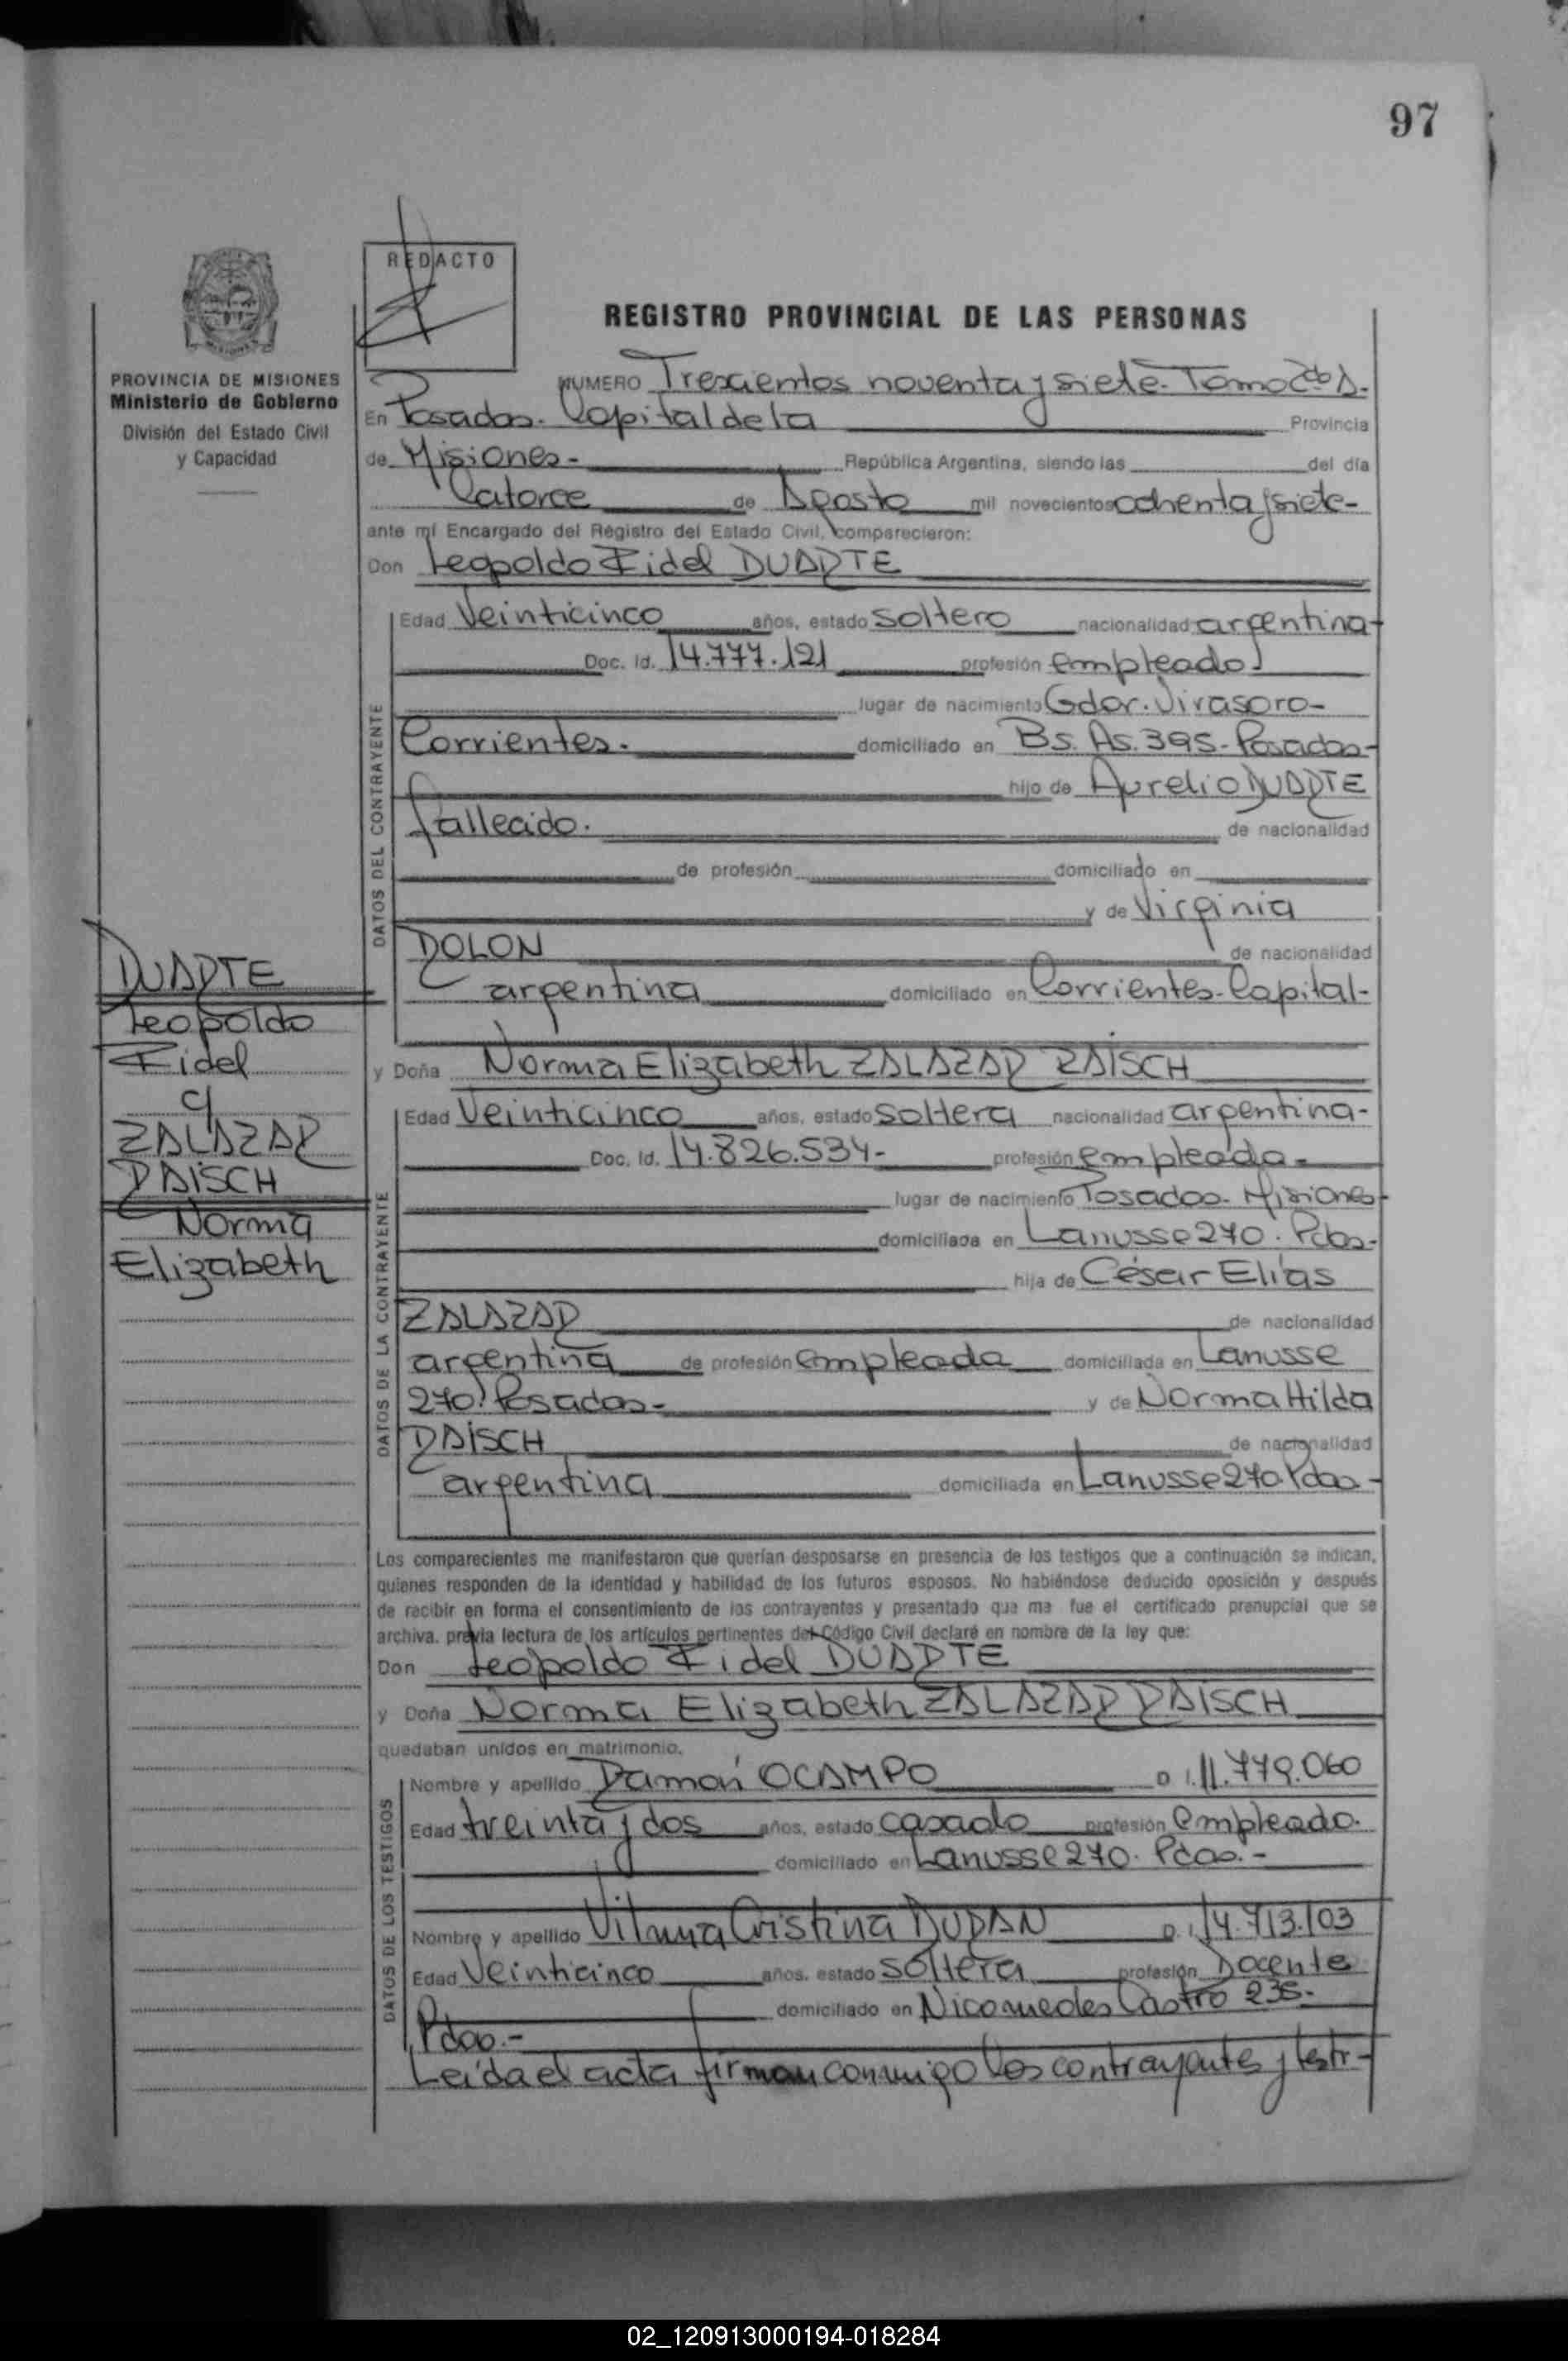 97
REDACTO
REGISTRO PROVINCIAL DE LAS PERSONAS
PROVINCIA DE MISIONES
Ministerio de Gobierno
División del Estado Civil
y Capacidad
NUMERO Trescientos noventa y siete. Tomo
En Posadas. Capital de la Provincia
de Misiones- República Argentina, siendo las del día
Catorce de Agosto mil novecientos ochenta y siete-
ante mí Encargado del Registro del Estado Civil, comparecieron:
Don Leopoldo Fidel DUARTE
DATOS DEL CONTRAYENTE
Edad Veinticinco años, estado soltero nacionalidad argentina-
Doc. Id. 14.777.121 profesión empleado
lugar de nacimiento Gdor. Virasoro-
Corrientes. domiciliado en Bs. As. 395- Posadas-
hijo de Aurelio DUARTE
fallecido. de nacionalidad
de profesión domiciliado en
y de Virginia
ROLON de nacionalidad
argentina domiciliado en Corrientes-Capital-
y Doña Norma Elizabeth ZALAZAR RAISCH
DATOS DE LA CONTRAYENTE
Edad Veinticinco años, estado soltera nacionalidad argentina-
Doc. Id. 14.826.534- profesión empleada-
lugar de nacimiento Posadas- Misiones-
domiciliada en Lanusse 270. Pdas-
hija de César Elías
ZALAZAR de nacionalidad
argentina de profesión empleada domiciliada en Lanusse
270. Posadas- y de Norma Hilda
RAISCH de nacionalidad
argentina domiciliada en Lanusse 270. Pdas-
DUARTE
Leopoldo
Fidel
c/
ZALAZAR
RAISCH
Norma
Elizabeth
Los comparecientes me manifestaron que querían desposarse en presencia de los testigos que a continuación se indican,
quienes responden de la identidad y habilidad de los futuros esposos. No habiéndose deducido oposición y después
de recibir en forma el consentimiento de los contrayentes y presentado que me fue el certificado prenupcial que se
archiva. previa lectura de los artículos pertinentes del Código Civil declaré en nombre de la ley que:
Don Leopoldo Fidel DUARTE
y Doña Norma Elizabeth ZALAZAR RAISCH
quedaban unidos en matrimonio.
DATOS DE LOS TESTIGOS
Nombre y apellido Ramón OCAMPO D. I. 11.779.060
Edad treinta y dos años, estado casado profesión empleado.
domiciliado en Lanusse 270. Pdas.-
Nombre y apellido Vilma Cristina DURAN D. I. 14.713.103
Edad Veinticinco años, estado soltera profesión Docente
domiciliado en Nicomedes Castro 235.
Pdas.-
Leída el acta firman conmigo los contrayentes y testi-
02_120913000194-018284